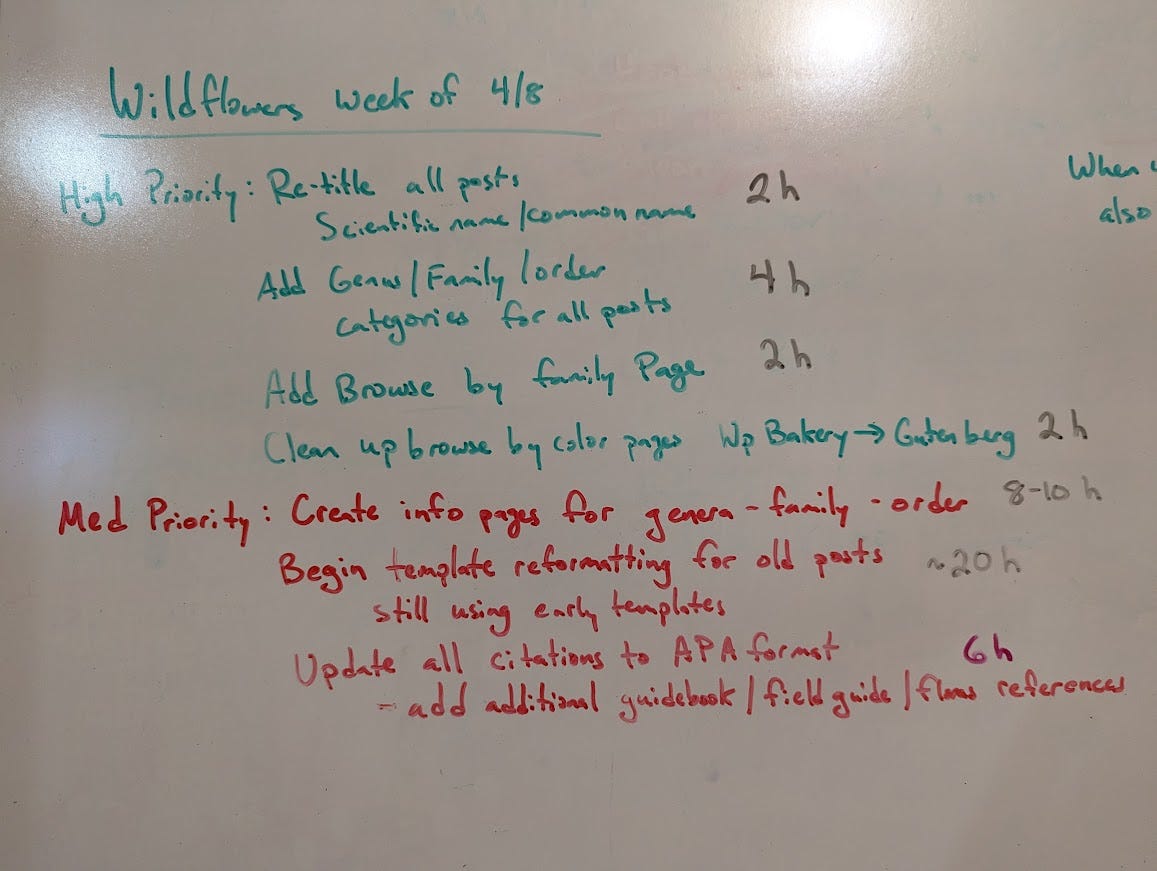 Wildflowers week of 4/8
High Priority: Re-title all posts 2h
Scientific name/common name
Add Genus/Family/order 4h
categories for all posts
Add Browse by family Page 2h
Clean up browse by color pages Wp Bakery → Gutenberg 2h
Med Priority: Create info pages for genera - family - order 8-10 h
Begin template reformatting for old posts ~20h
still using early templates
Update all citations to APA format 6h
- add additional guidebook/field guide/floras references
When
also